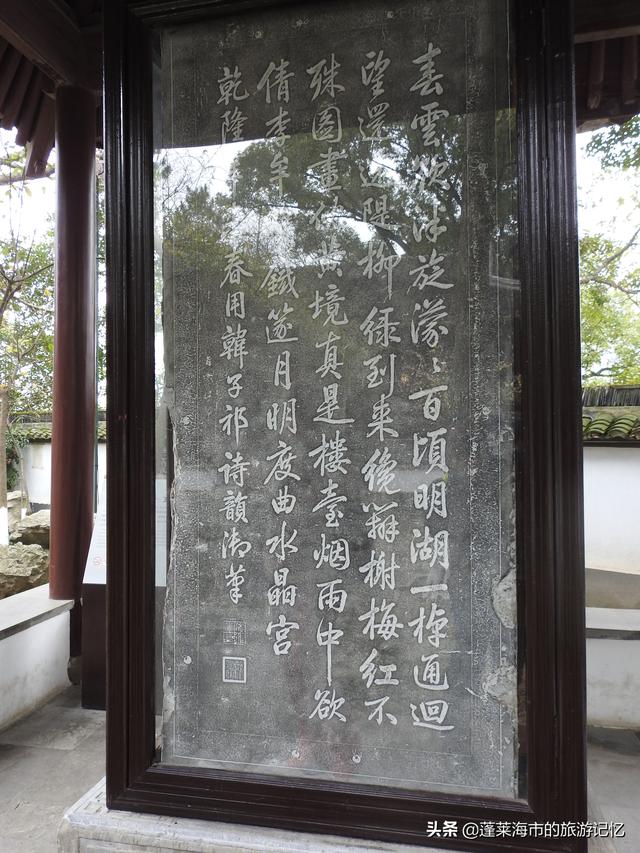 春雲欲泮旋濛〻百頃明湖一棹通迴
望還迷隄柳綠到來纔辨榭梅紅不
殊圖畫倪黃境真是樓臺烟雨中欲
倩李牟鐵篴月明度曲水晶宮
乾隆春用韓子祁詩韻御筆
头条 @蓬莱海市的旅游记忆